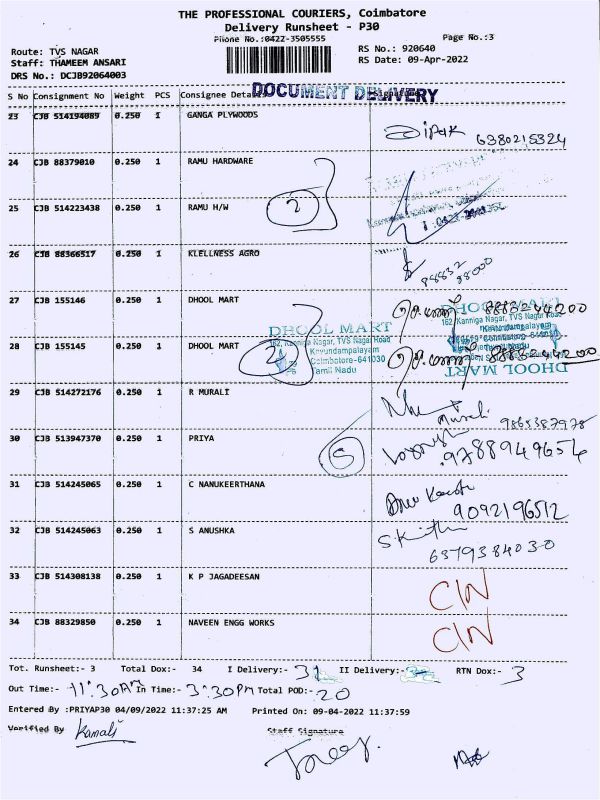 THE PROFESSIONAL COURIERS, Coimbatore
Delivery Runsheet - P30
Phone No.:0422-3505555
Page No.:3
Route: TVS NAGAR
Staff: THAMEEM ANSARI
DRS No.: DCJB92064003
RS No.: 920640
RS Date: 09-Apr-2022
DOCUMENT DELIVERY
S No Consignment No Weight PCS Consignee Details
23 CJB 514194089 0.250 1 GANGA PLYWOODS 6380215324
24 CJB 88379010 0.250 1 RAMU HARDWARE
25 CJB 514223438 0.250 1 RAMU H/W 2
26 CJB 88366517 0.250 1 KLELLNESS AGRO 88832 98000
27 CJB 155146 0.250 1 DHOOL MART 8883244200
28 CJB 155145 0.250 1 DHOOL MART 2 8883244200
DHOOL MART
162, Kanniga Nagar, TVS Nagar Road
Kavundampalayam
Coimbatore-641030
Tamil Nadu
DHOOL MART
162, Kanniga Nagar, TVS Nagar Road
Kavundampalayam
DHOOL MART
29 CJB 514272176 0.250 1 R MURALI Murali 9865387978
30 CJB 513947370 0.250 1 PRIYA 5 9788949654
31 CJB 514245065 0.250 1 C NANUKEERTHANA 9092196512
32 CJB 514245063 0.250 1 S ANUSHKA 6379384030
33 CJB 514308138 0.250 1 K P JAGADEESAN C/N
34 CJB 88329850 0.250 1 NAVEEN ENGG WORKS C/N
Tot. Runsheet:- 3 Total Dox:- 34 I Delivery:- 31 II Delivery:- RTN Dox:- 3
Out Time:- 11:30AM In Time:- 3:30PM Total POD:- 20
Entered By :PRIYAP30 04/09/2022 11:37:25 AM Printed On: 09-04-2022 11:37:59
Verified By Kamali
Staff Signature